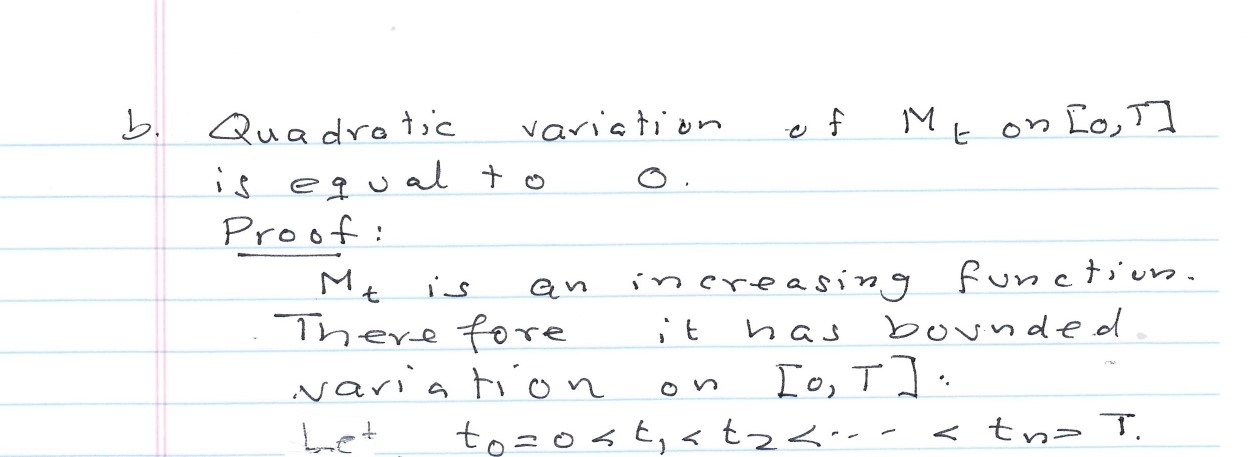 b. Quadratic variation of M_t on [0,T]
is equal to 0.
Proof:
M_t is an increasing function.
Therefore it has bounded
variation on [0,T].
Let t_0=0<t_1<t_2<--- < t_n= T.